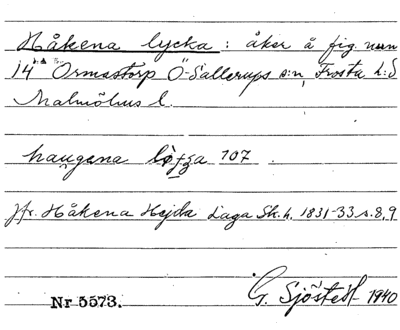 Håkena lycka: åker å fig. nun
14 Ormastorp Ö-Sallerups s:n, Frosta h:d
Malmöhus l.
haugena 107.
jfr. Håkena Hejda Laga Sk. h. 1831-33 s. 8, 9
Nr 5573. G. Sjöstedt 1940